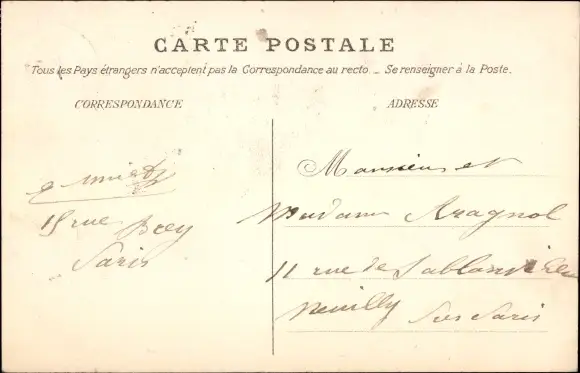 CARTE POSTALE
Tous les Pays étrangers n'acceptent pas la Correspondance au recto. - Se renseigner à la Poste.
CORRESPONDANCE
ADRESSE
15 rue Brey
Paris
Monsieur et
Madame Aragnol
11 rue de Sablonville
Neuilly Sur Paris